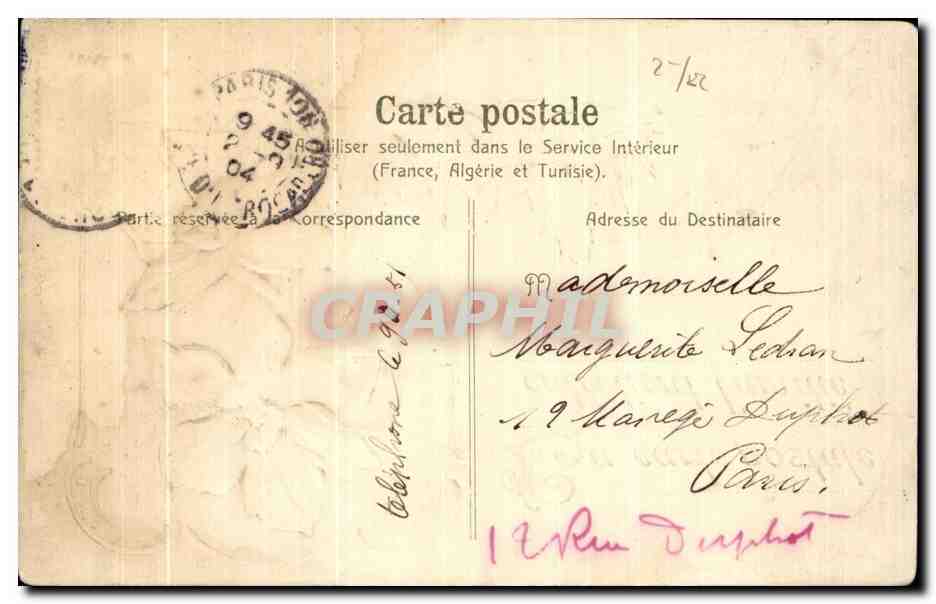 2-/22
PARIS
9 45
04
Carte postale
A utiliser seulement dans le Service Intérieur
(France, Algérie et Tunisie).
Partie réservée à la Correspondance
Adresse du Destinataire
téléphone le
CRAPHIL
Mademoiselle
Marguerite Ledran
12 Manège Duphot
Paris.
12 Rue Duphot